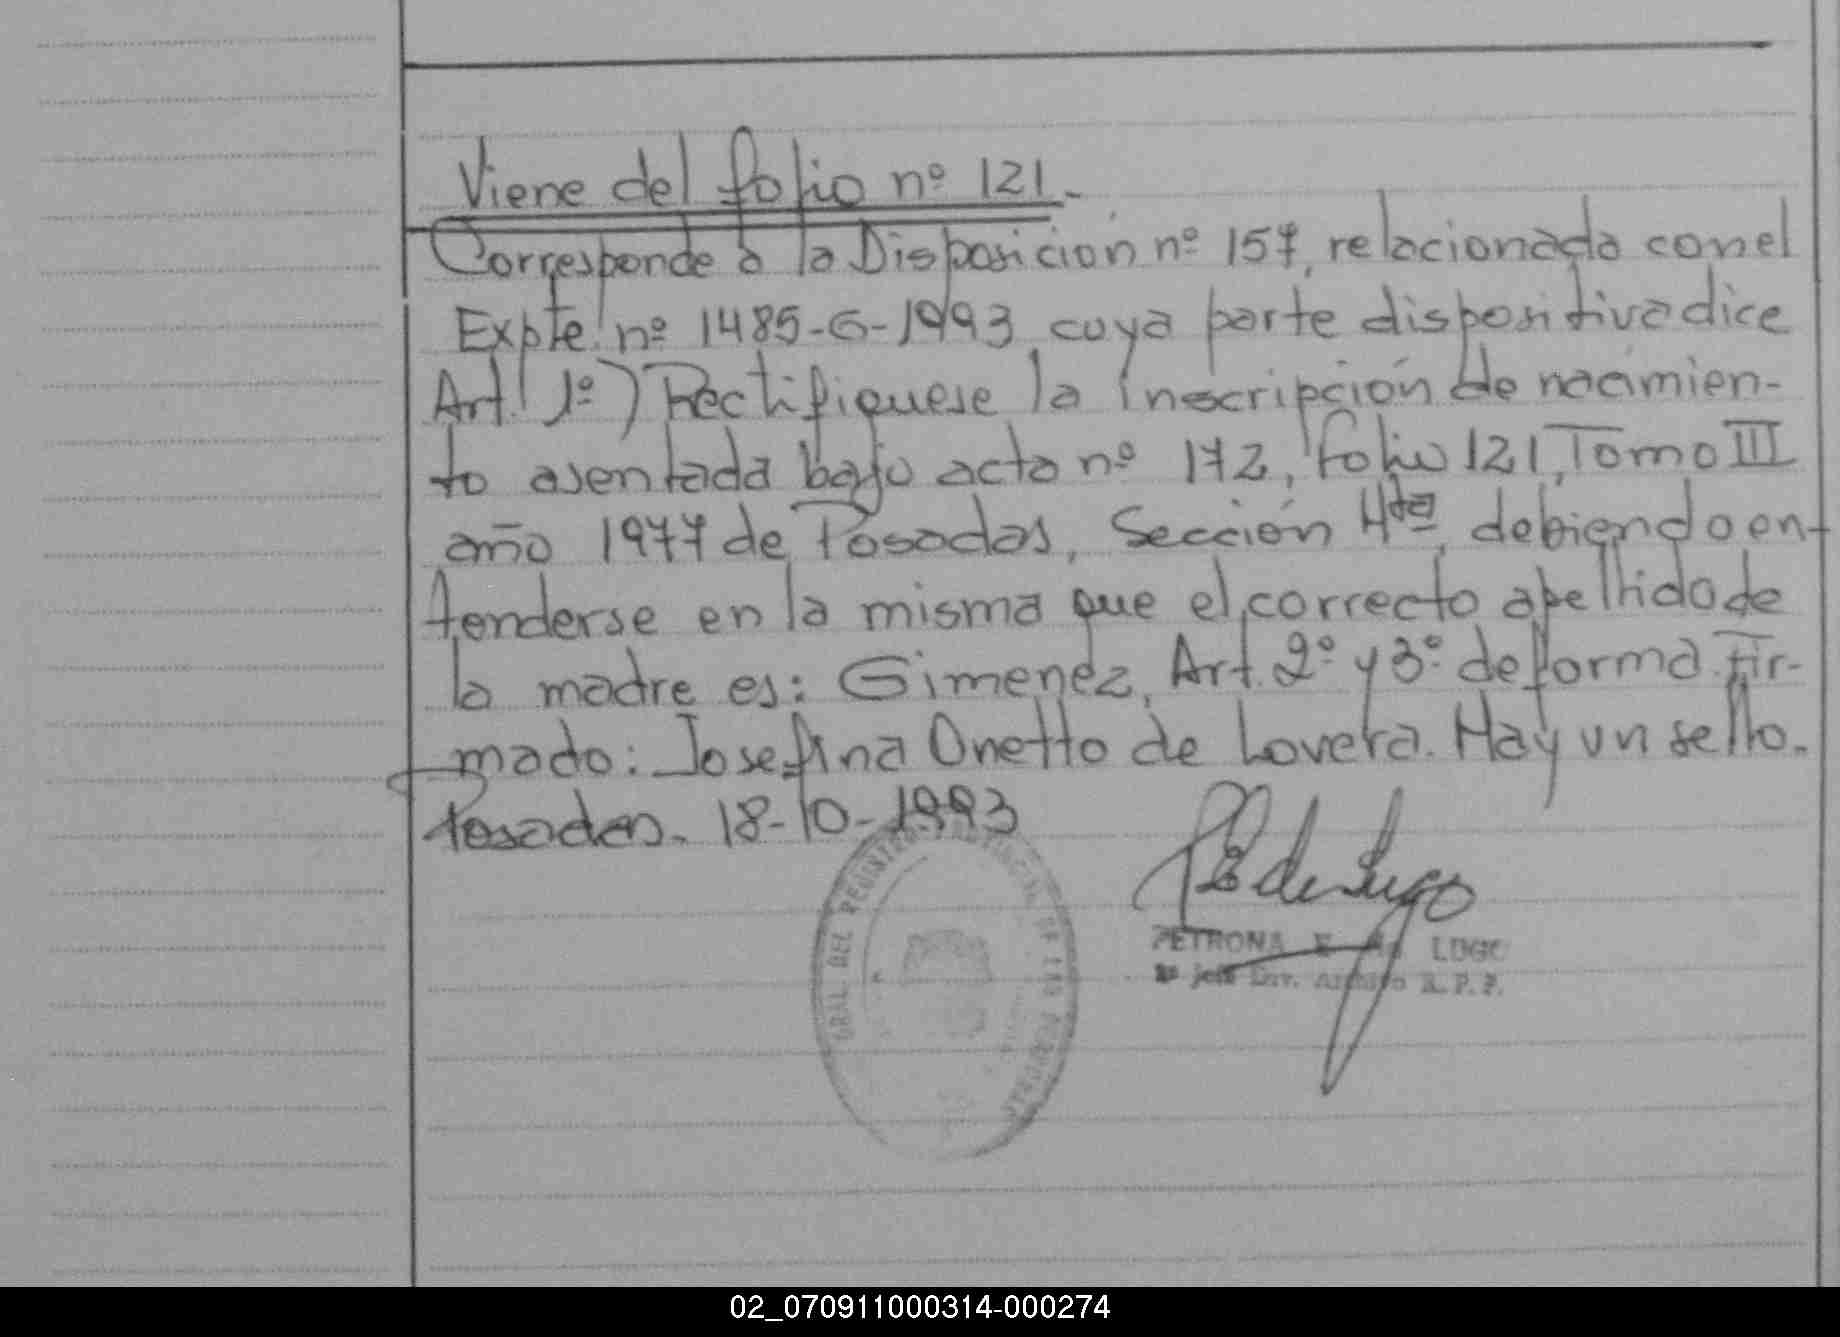 Viene del folio nº 121.
Corresponde a la Disposición nº 157, relacionada con el
Expte. nº 1485-G-1993 cuya parte dispositiva dice
Art. 1º) Rectifiquese la inscripción de nacimien-
to asentada bajo acta nº 172, folio 121, Tomo III
año 1977 de Posadas, Sección 4ta, debiendo en-
tenderse en la misma que el correcto apellido de
la madre es: Gimenez, Art. 2º y 3º de forma. Fir-
mado: Josefina Onetto de Lovera. Hay un sello.
Posadas. 18-10-1993
GRAL. DEL REGISTRO PROVINCIAL DE LAS PERSONAS
PETRONA E. de LUGO
Jefe Div. Archivo R.P.P.
02_070911000314-000274